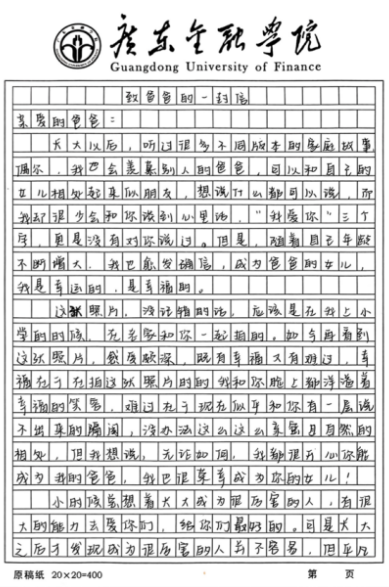 广东金融学院
Guangdong University of Finance
致爸爸的一封信
亲爱的爸爸：
长大以后，听过很多不同版本的家庭故事，
偶尔，我也会羡慕别人的爸爸，可以和自己的
女儿相处起来似朋友，想说什么都可以说，而
我却很少会和你说到心里话，“我爱你”三个
字，更是没有对你说过。但是，随着自己年龄
不断增大，我也愈发确信，成为爸爸的女儿，
我是幸运的，是幸福的。
这张照片，没记错的话，应该是在我上小
学的时候，在名家和你一起拍的。如今再看到
这张照片，感受颇深，既有幸福又有难过，幸
福在于在拍这张照片时的我和你脸上都洋溢着
幸福的笑容，难过在于现在似乎和你有一层说
不出来的隔阂，没办法这么这么亲密且自然的
相处，但我想说，无论如何，我都很开心你能
成为我的爸爸，我也很荣幸成为你的女儿！
小的时候总想着长大成为很厉害的人，有很
大的能力去爱你们，给你们最好的。可是长大
之后才发现成为很厉害的人并不容易，但平凡
原稿纸 20×20=400 第 页